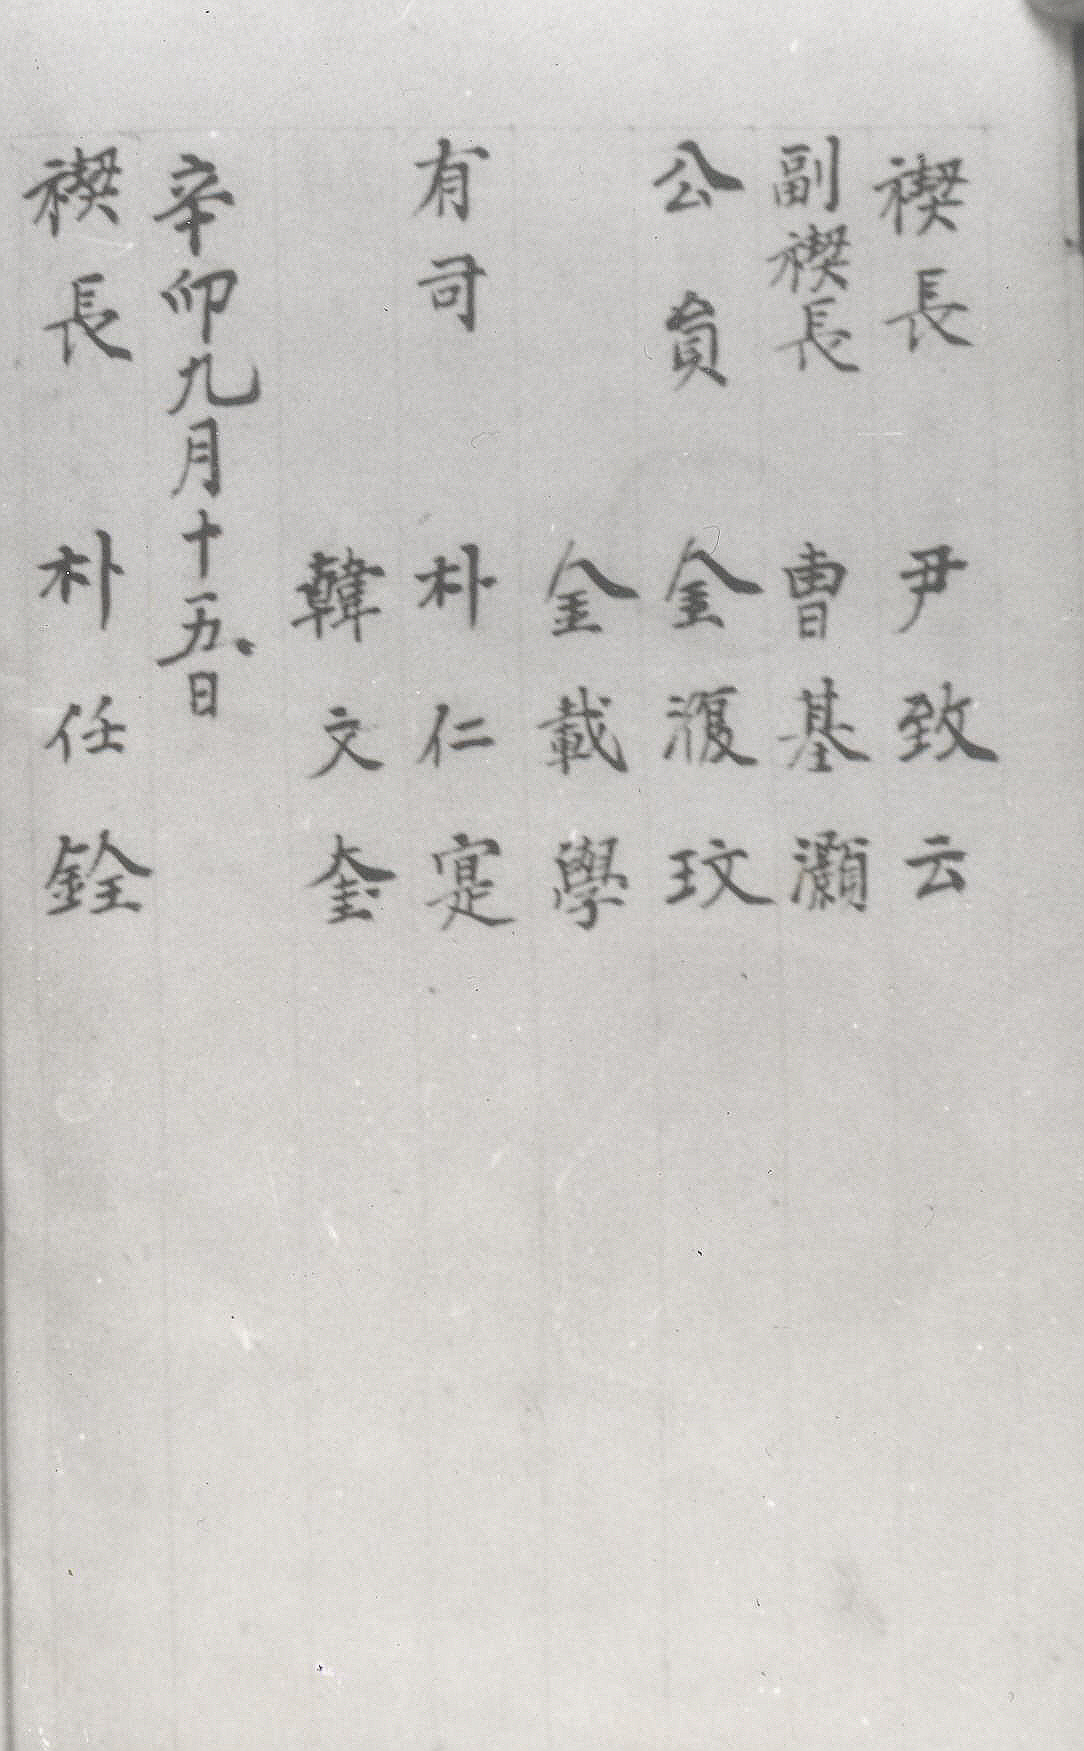 禊長 尹致云
副禊長 曺基灝
公員 金澓玟
金載學
有司 朴仁寔
韓文奎
辛卯九月十五日
禊長 朴任銓